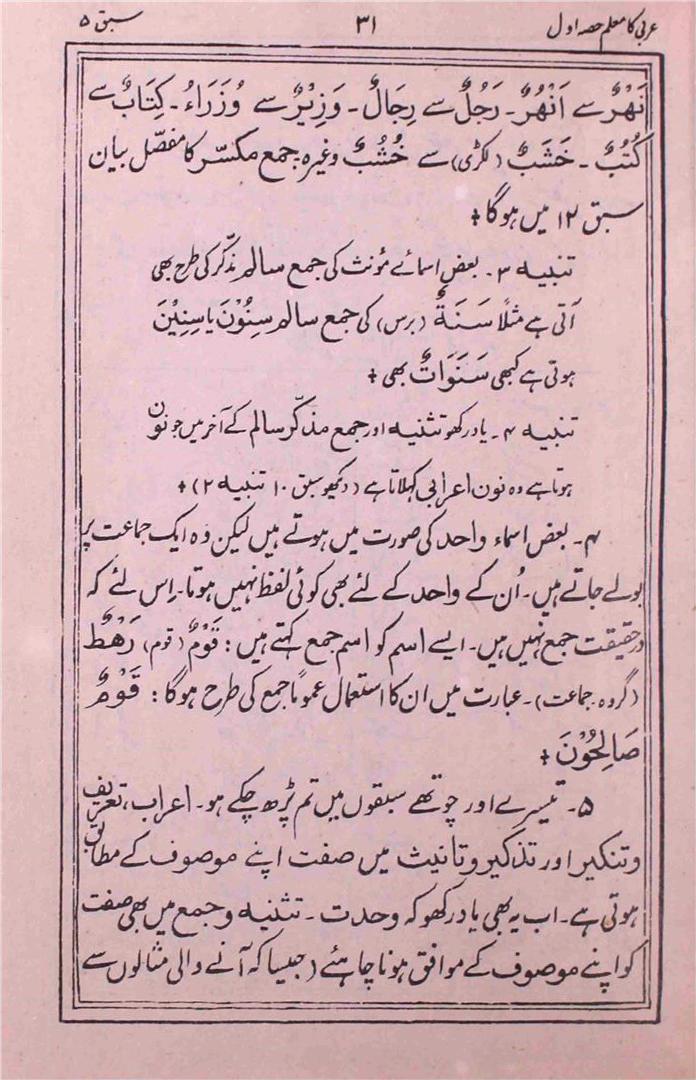 عربی کا معلم حصہ اول ۳۱ سبق ۵
نَھْرٌ سے اَنْھُرٌ۔ رَجُلٌ سے رِجَالٌ۔ وَزِیْرٌ سے وُزَرَاءُ۔ کِتَابٌ سے
کُتُبٌ۔ خَشَبٌ (لکڑی) سے خُشُبٌ وغیرہ جمع مکسّر کا مفصّل بیان
سبق ۱۲ میں ہوگا +
تنبیہ ۳۔ بعض اسمائے مؤنث کی جمع سالم مذکّر کی طرح بھی
آتی ہے مثلًا سَنَةٌ (برس) کی جمع سالم سِنُوْنَ یا سِنِیْنَ
ہوتی ہے کبھی سَنَوَاتٌ بھی +
تنبیہ ۴۔ یاد رکھو تثنیہ اور جمع مذکّر سالم کے آخر میں جو نون
ہوتا ہے وہ نون اعرابی کہلاتا ہے (دیکھو سبق ۱۰ تنبیہ ۲) +
۴۔ بعض اسماء واحد کی صورت میں ہوتے ہیں لیکن وہ ایک جماعت پر
بولے جاتے ہیں۔ اُن کے واحد کے لئے بھی کوئی لفظ نہیں ہوتا۔ اِس لئے کہ
درحقیقت جمع نہیں ہیں۔ ایسے اسم کو اسم جمع کہتے ہیں: قَوْمٌ (قوم) رَھْطٌ
(گروہ۔ جماعت)۔ عبارت میں ان کا استعمال عمومًا جمع کی طرح ہوگا: قَوْمٌ
صَالِحُوْنَ +
۵۔ تیسرے اور چوتھے سبقوں میں تم پڑھ چکے ہو۔ اعراب، تعریف
وتنکیر اور تذکیر وتانیث میں صفت اپنے موصوف کے مطابق
ہوتی ہے۔ اب یہ بھی یاد رکھو کہ وحدت۔ تثنیہ وجمع میں بھی صفت
کو اپنے موصوف کے موافق ہونا چاہئے (جیسا کہ آنے والی مثالوں سے